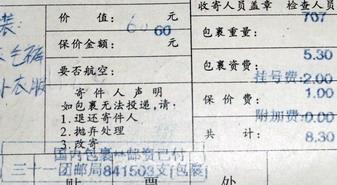 装:
价 值: 60 元
60
保价金额: 元
要否航空:
寄件人声明
如包裹无法投递,请:
1.退还寄件人
2.抛弃处理
3.改寄
国内包裹 邮资已付
三十一团邮局841503支[包裹]
贴 票 处
收寄人员盖章 检查人员
707
包裹重量:
5.30
包裹资费:
挂号费:2.00
1.00
保价费:
附加费:0.00
共计: 8.30